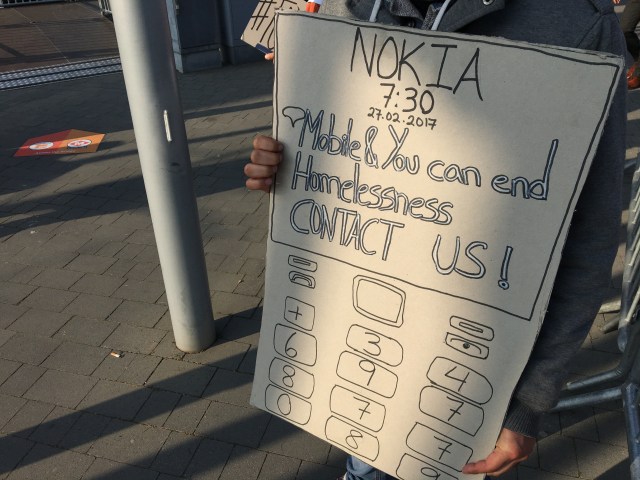 NOKIA
7:30
27.02.2017
Mobile & You can end
Homelessness
CONTACT US!
+ 3 4
6 9 7
8 7 7
0 8 9